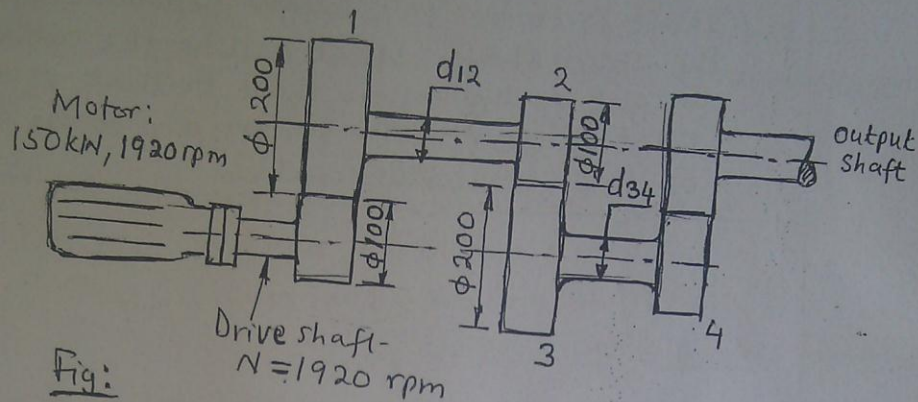 1
ϕ 200
d12
2
ϕ100
Motor:
150kN, 1920rpm
output
shaft
d34
ϕ100
ϕ200
Drive shaft-
N = 1920 rpm
3
4
Fig: